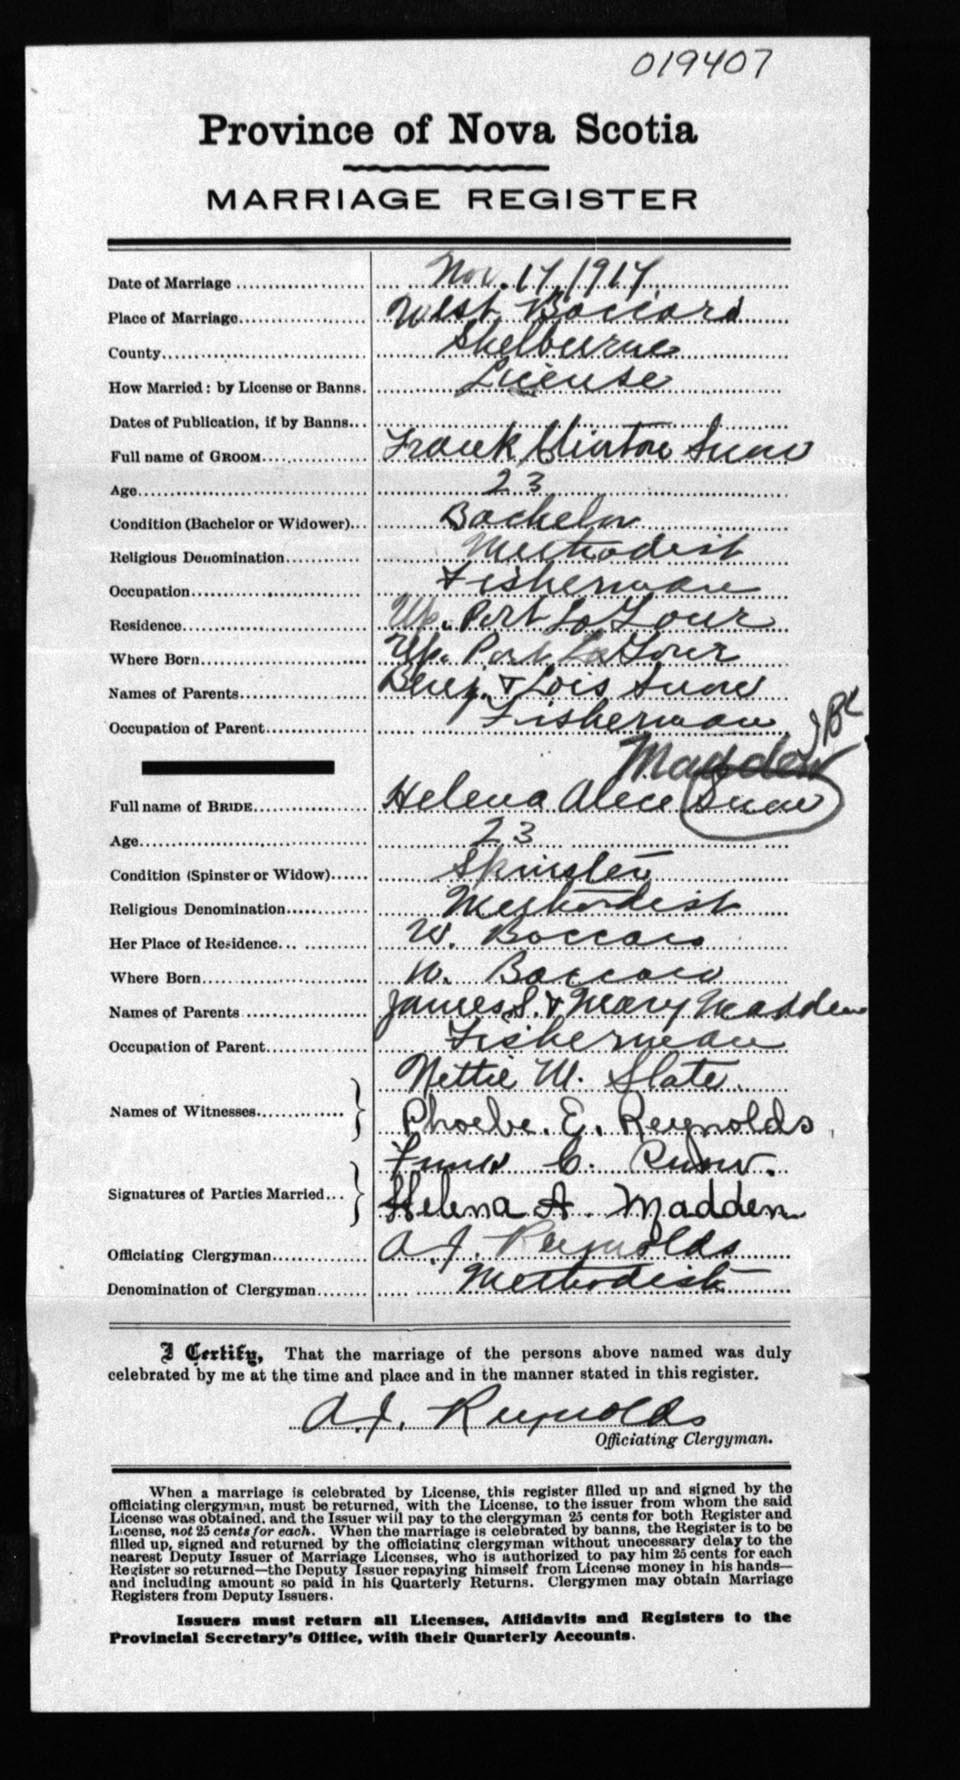 019407
Province of Nova Scotia
MARRIAGE REGISTER
Date of Marriage Nov. 17, 1917
Place of Marriage West Baccaro
County Shelburne
How Married: by License or Banns. License
Dates of Publication, if by Banns
Full name of GROOM Frank Clinton Snow
Age 23
Condition (Bachelor or Widower) Bachelor
Religious Denomination Methodist
Occupation Fisherman
Residence Up. Port LaTour
Where Born Up. Port LaTour
Names of Parents Benj. & Lois Snow
Occupation of Parent Fisherman
Madden
Full name of BRIDE Helena Alice Snow
Age 23
Condition (Spinster or Widow) Spinster
Religious Denomination Methodist
Her Place of Residence W. Baccaro
Where Born W. Baccaro
Names of Parents James S. & Mary Madden
Occupation of Parent Fisherman
Nettie M. Slate
Names of Witnesses
Phoebe. E. Reynolds
C. Snow.
Signatures of Parties Married
Helena A. Madden
Officiating Clergyman A. J. Reynolds
Denomination of Clergyman Methodist
I Certify, That the marriage of the persons above named was duly
celebrated by me at the time and place and in the manner stated in this register.
A. J. Reynolds
Officiating Clergyman.
When a marriage is celebrated by License, this register filled up and signed by the
officiating clergyman, must be returned, with the License, to the issuer from whom the said
License was obtained, and the Issuer will pay to the clergyman 25 cents for both Register and
License, not 25 cents for each. When the marriage is celebrated by banns, the Register is to be
filled up, signed and returned by the officiating clergyman without unnecessary delay to the
nearest Deputy Issuer of Marriage Licenses, who is authorized to pay him 25 cents for each
Register so returned—the Deputy Issuer repaying himself from License money in his hands—
and including amount so paid in his Quarterly Returns. Clergymen may obtain Marriage
Registers from Deputy Issuers.
Issuers must return all Licenses, Affidavits and Registers to the
Provincial Secretary's Office, with their Quarterly Accounts.